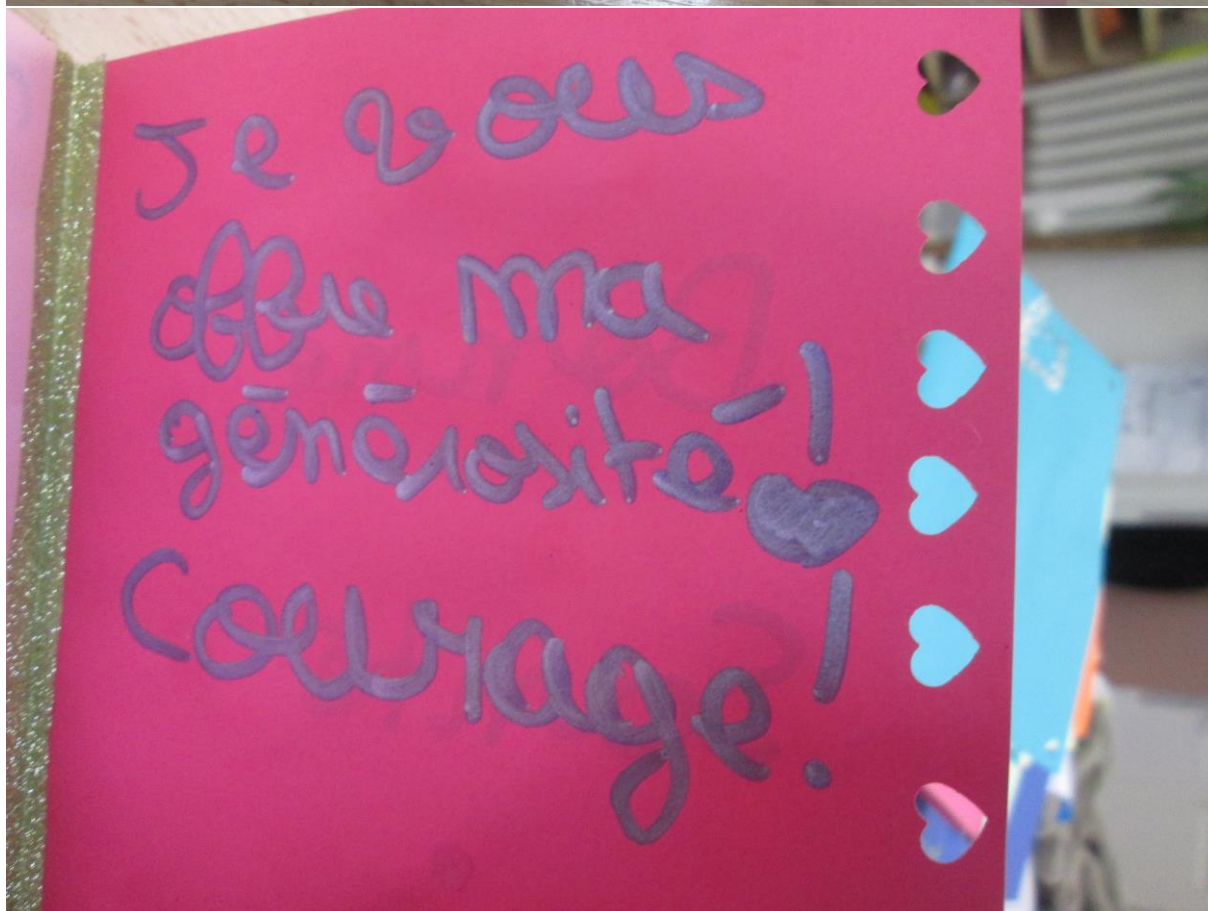 Je vous
offre ma
générosité!
Courage!